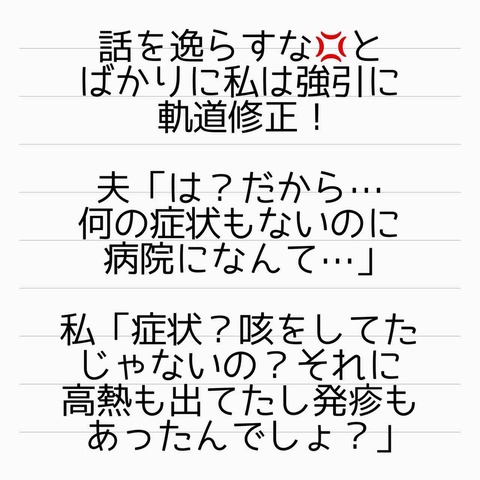 話を逸らすな💢と
ばかりに私は強引に
軌道修正！
夫「は？だから…
何の症状もないのに
病院になんて…」
私「症状？咳をしてた
じゃないの？それに
高熱も出てたし発疹も
あったんでしょ？」